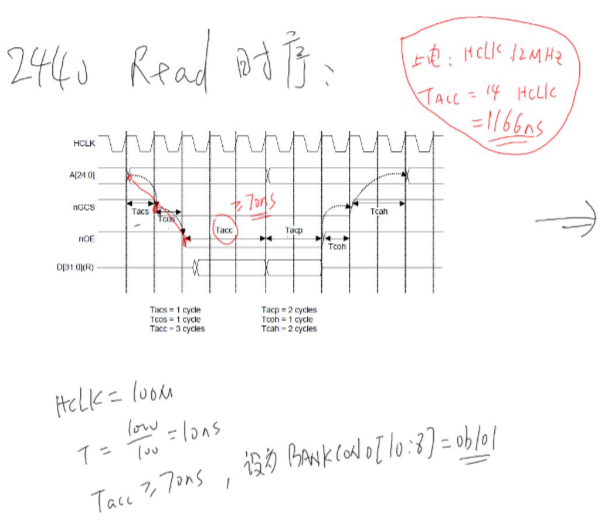 2440 Read 时序:
上电: HCLK 12MHz
TAcc = 14 HCLK
=1166ns
HCLK
A[24:0]
nGCS
Tacs
Tcos
≥70ns
Tcah
nOE
Tacc
Tacp
Tcoh
D[31:0](R)
Tacs = 1 cycle
Tcos = 1 cycle
Tacc = 3 cycles
Tacp = 2 cycles
Tcoh = 1 cycle
Tcah = 2 cycles
HCLK = 100M
T = 1000/100 = 10ns
Tacc ≥ 70ns, 设为 BANKCON0[10:8] = 0b101